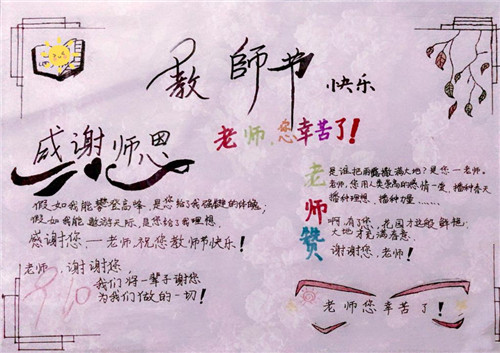 教師节
快乐
老师,您幸苦了!
感谢师恩
假如我能攀登高峰,是您给了我强健的体魄,
假如我能遨游天际,是您给了我理想.
感谢您—老师,祝您教师节快乐!
老师赞
是谁把雨露撒满大地?是您—老师。
老师,您用人类崇高的热情—爱,播种春天
播种理想、播种力量……
啊,有了您,花园才这般鲜艳,
大地才充满春意.
谢谢您,老师!
老师,谢谢您,
我们将一辈子谢您
为我们做的一切!
9.10
老师您幸苦了!